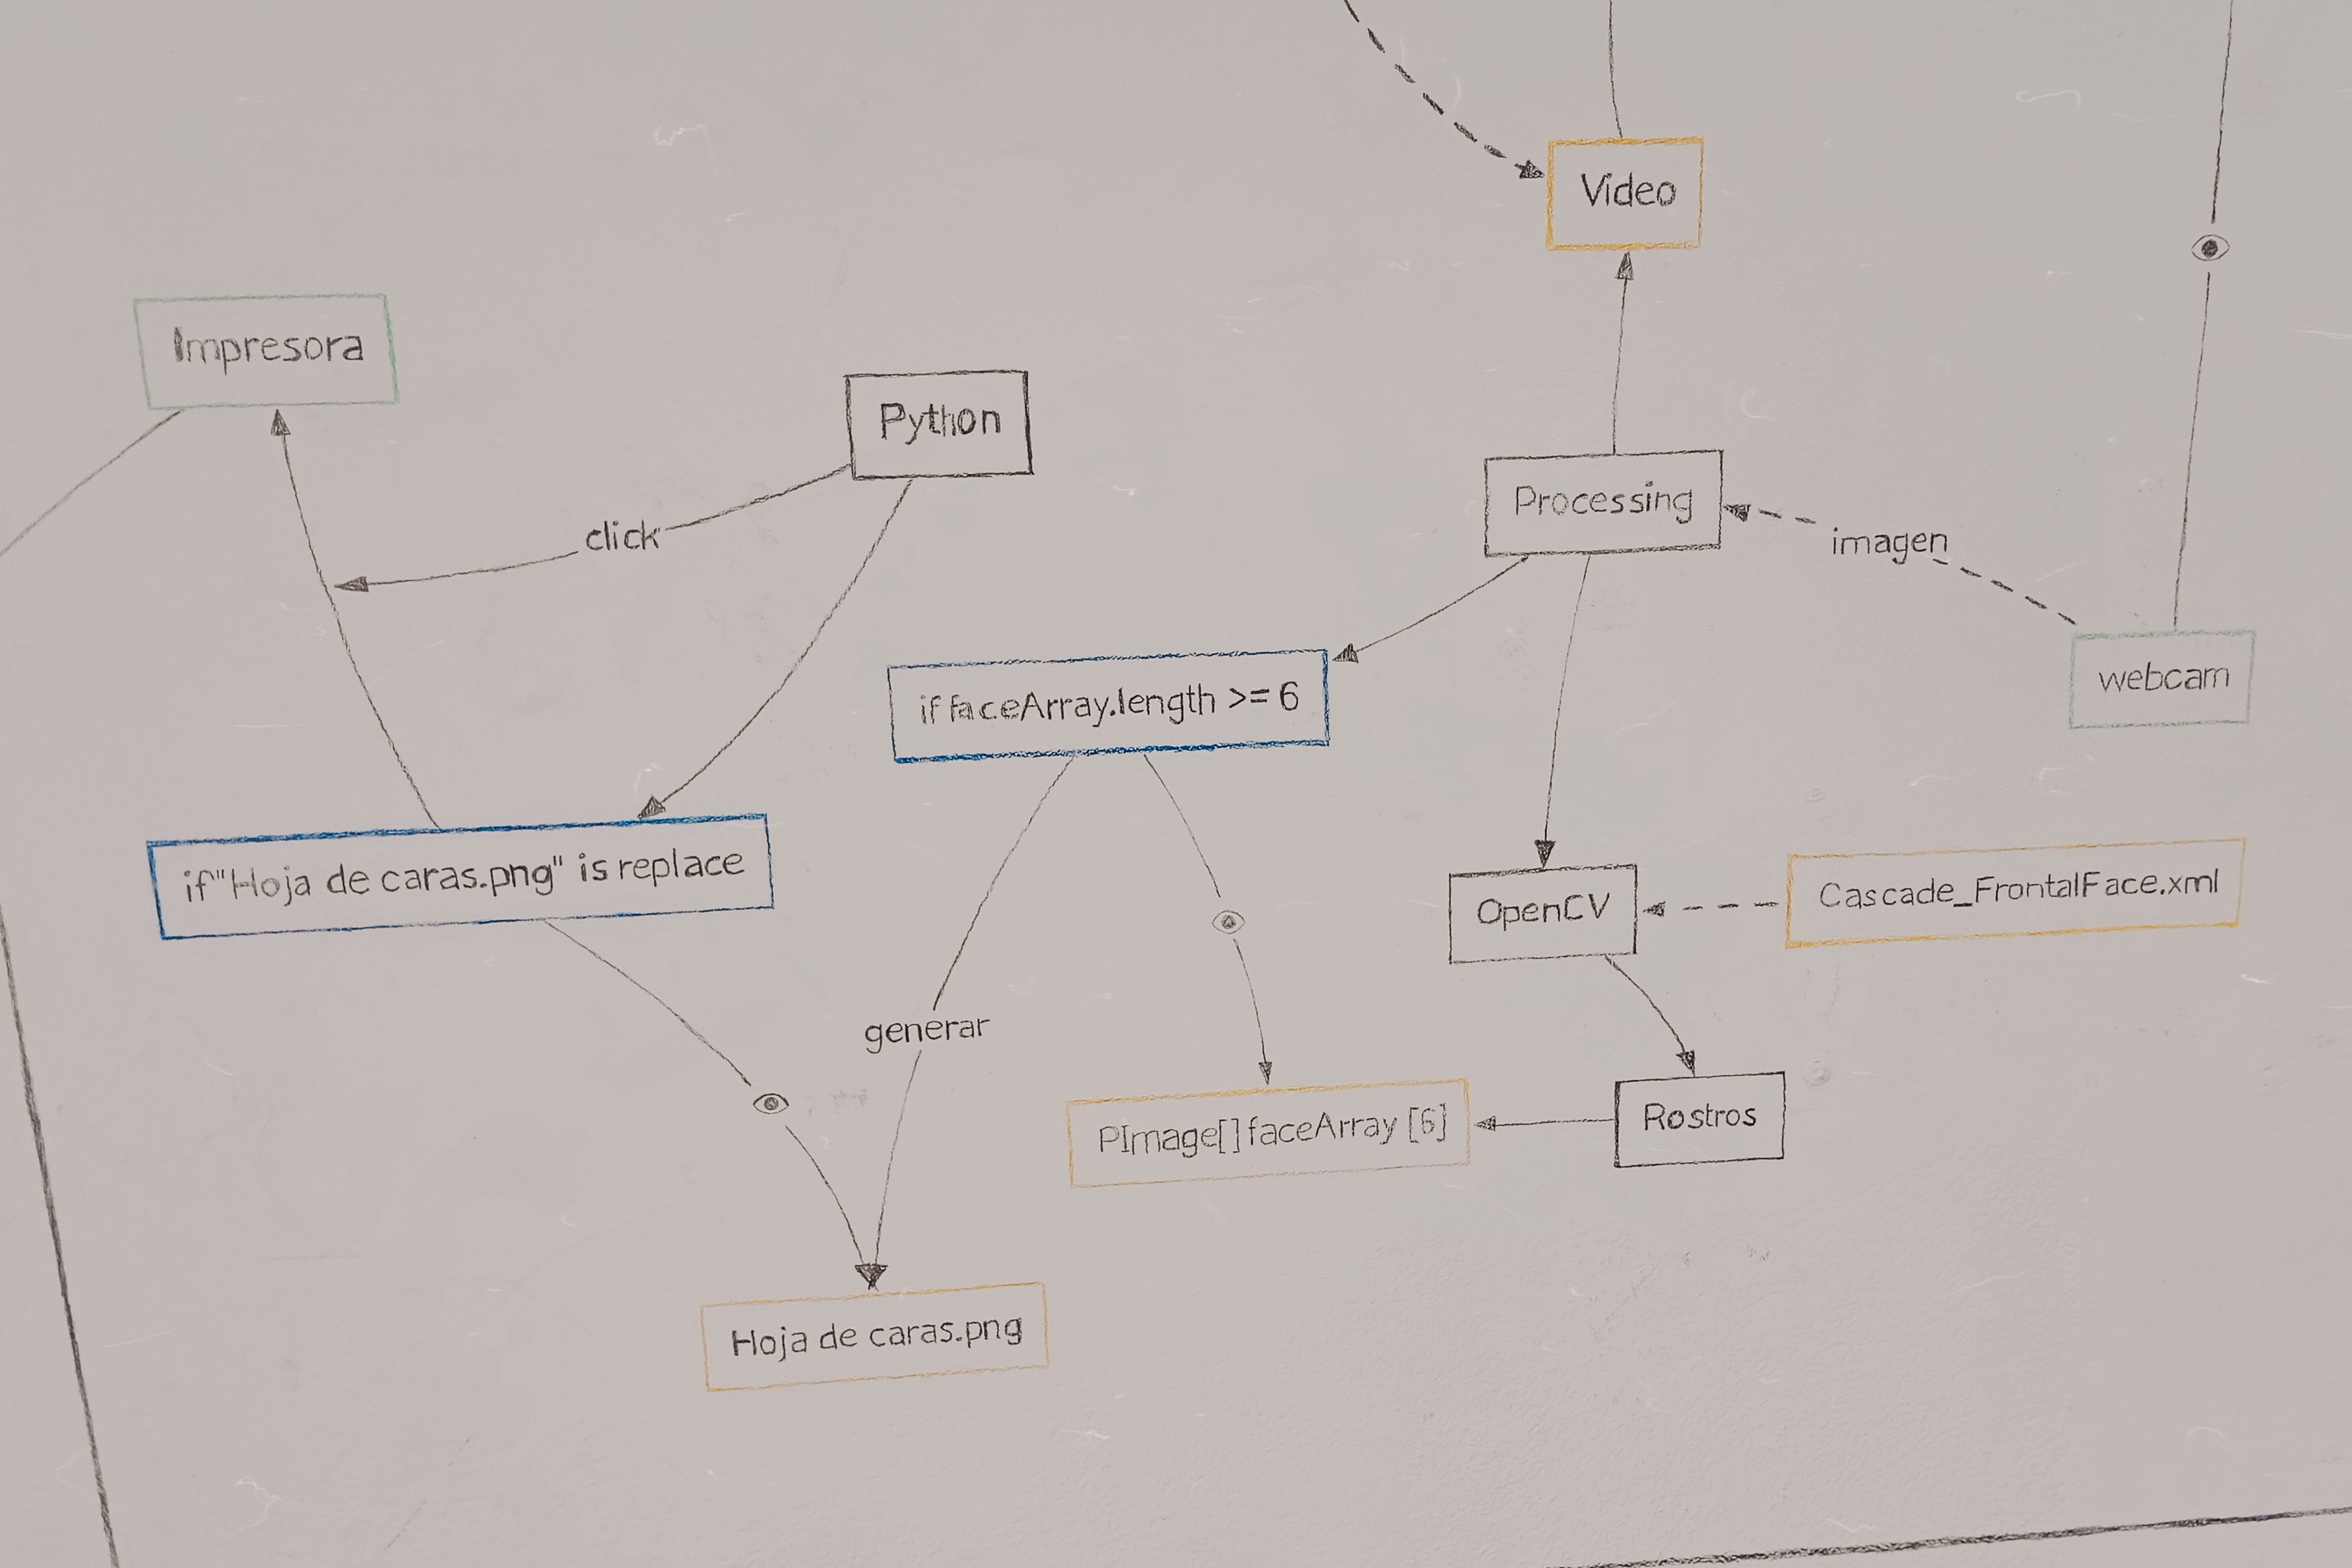 Video
Impresora
Python
click
Processing
imagen
webcam
if faceArray.length >= 6
if "Hoja de caras.png" is replace
OpenCV
Cascade_FrontalFace.xml
generar
PImage[] faceArray [6]
Rostros
Hoja de caras.png